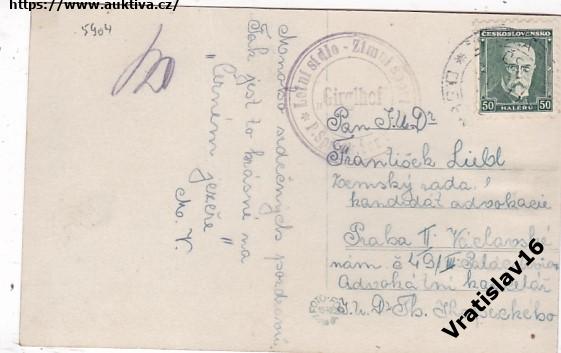 https://www.auktiva.cz/
5904
Mnoho srdečných pozdravů
Tak jest to krásné na
„Černém jezeře"
M. V.
* Letní sídlo - Zimní sport
"Girglhof"
ČESKOSLOVENSKO
50 50
HALÉŘŮ
Pan J.U.Dr
František Liebl
Zemský rada
kandidát advokacie
Praha II. Václavské
nám. č 49/III Palác
Advokátní kancelář
J.U.Dr
Vratislav16